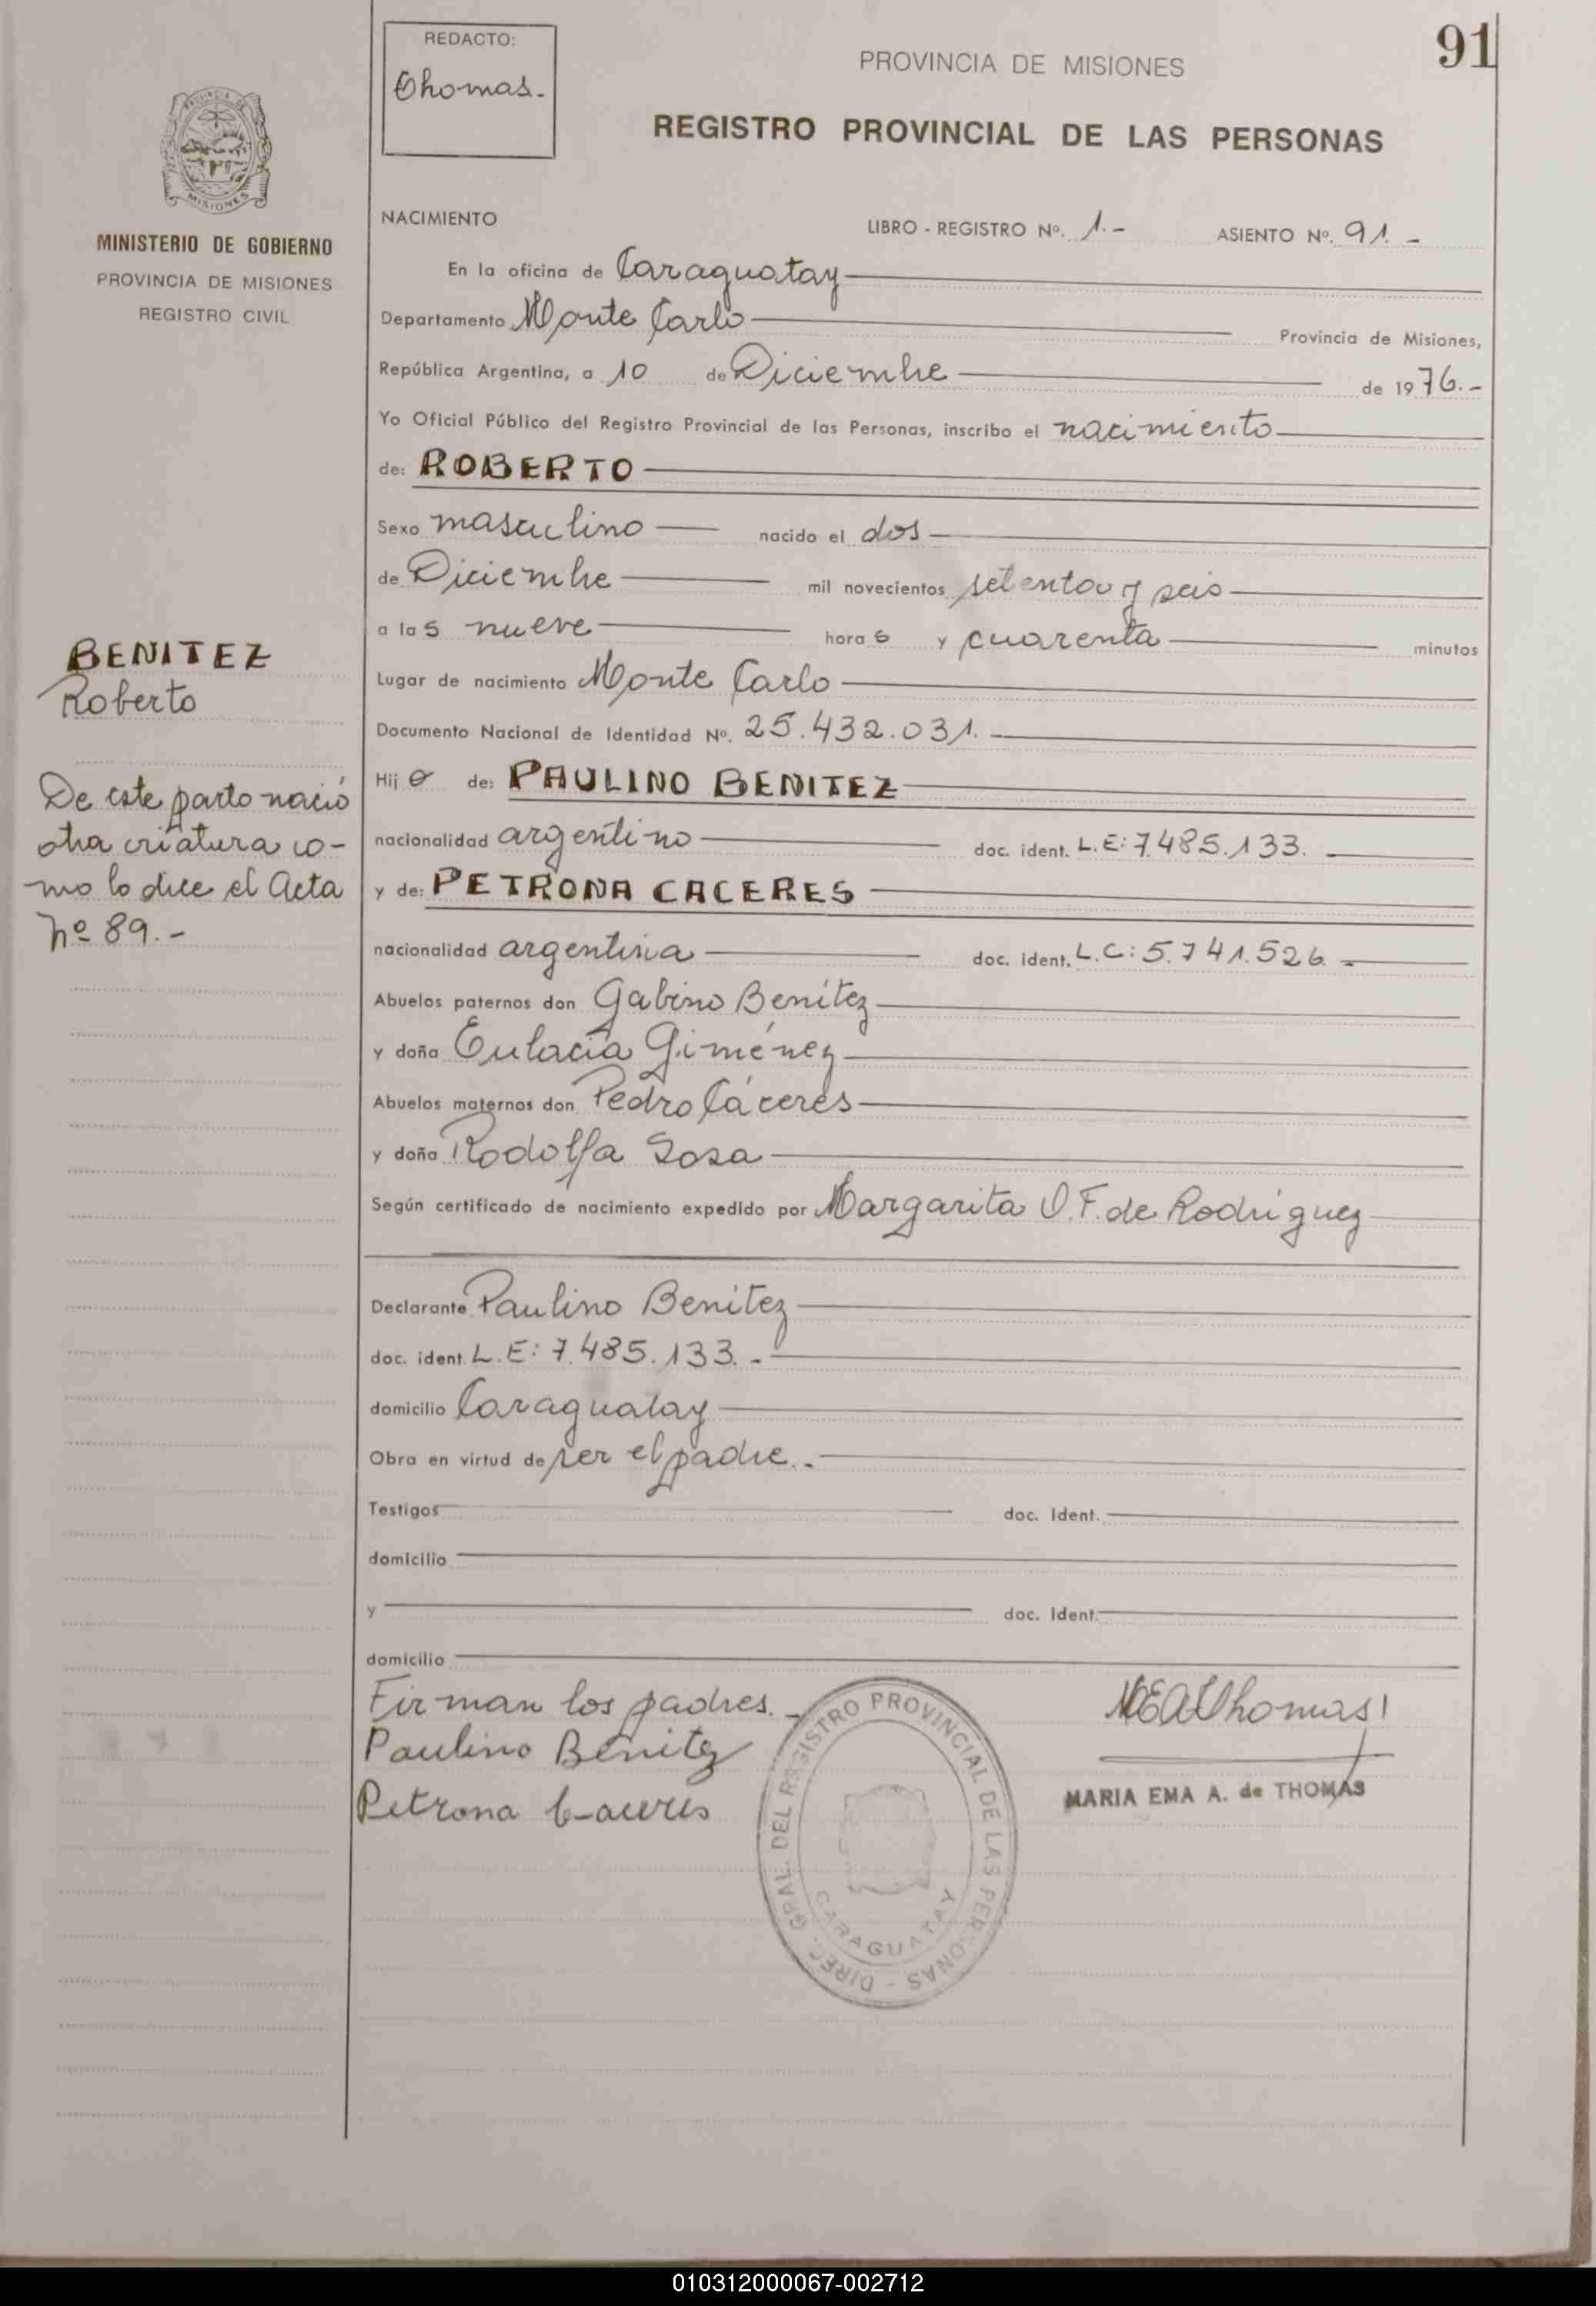 91
REDACTO:
Thomas.-
PROVINCIA DE MISIONES
REGISTRO PROVINCIAL DE LAS PERSONAS
MISIONES
MINISTERIO DE GOBIERNO
PROVINCIA DE MISIONES
REGISTRO CIVIL
BENITEZ
Roberto
De este parto nació
otra criatura co-
mo lo dice el Acta
Nº 89.-
NACIMIENTO LIBRO - REGISTRO Nº. 1.- ASIENTO Nº. 91.-
En la oficina de Caraguatay
Departamento Monte Carlo Provincia de Misiones,
República Argentina, a 10 de Diciembre de 1976.-
Yo Oficial Público del Registro Provincial de las Personas, inscribo el nacimiento
de: ROBERTO
Sexo masculino nacido el dos
de Diciembre mil novecientos setenta y seis
a las nueve horas y cuarenta minutos
Lugar de nacimiento Monte Carlo
Documento Nacional de Identidad Nº. 25.432.031.
Hijo de: PAULINO BENITEZ
nacionalidad argentino doc. ident. L.E: 7.485.133.
y de: PETRONA CACERES
nacionalidad argentina doc. ident. L.C: 5.741.526.-
Abuelos paternos don Gabino Benítez
y doña Eulacia Giménez
Abuelos maternos don Pedro Cáceres
y doña Rodolfa Sosa
Según certificado de nacimiento expedido por Margarita O. F. de Rodríguez
Declarante Paulino Benítez
doc. ident. L.E: 7.485.133.-
domicilio Caraguatay
Obra en virtud de ser el padre.-
Testigos doc. Ident.
domicilio
y doc. Ident.
domicilio
Firman los padres.-
Paulino Benitez
Petrona Caceres
MEAThomas
MARIA EMA A. de THOMAS
DIREC. GRAL. DEL REGISTRO PROVINCIAL DE LAS PERSONAS -
CARAGUATAY
010312000067-002712